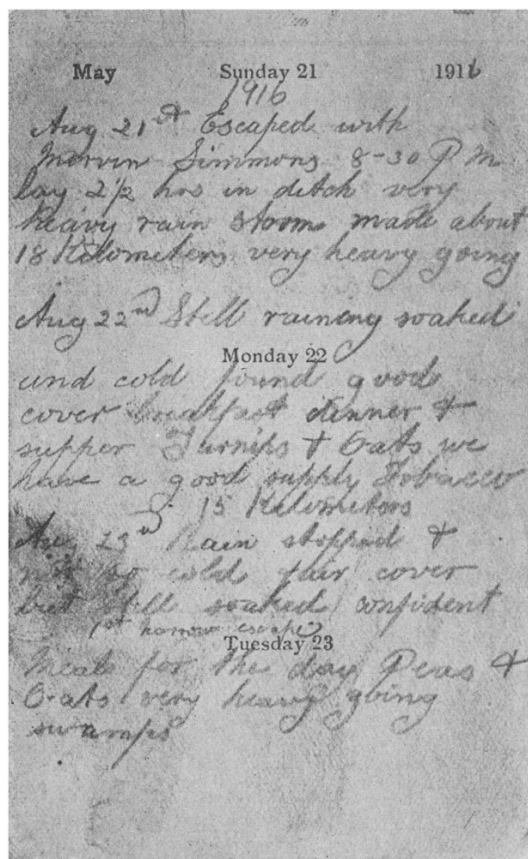 May Sunday 21 1916
1916
Aug 21st Escaped with
Mervin Simmons 8-30 P M
lay 2 1/2 hrs in ditch very
heavy rain storm made about
18 Kilometers very heavy going
Aug 22nd Still raining soaked
Monday 22
and cold found good
cover breakfast dinner &
supper Turnips & Oats we
have a good supply Tobacco
15 Kilometers
Aug 23rd Rain stopped &
not so cold fair cover
but still soaked confident
1st narrow escape
Tuesday 23
Meals for the day Peas &
Oats very heavy going
swamps